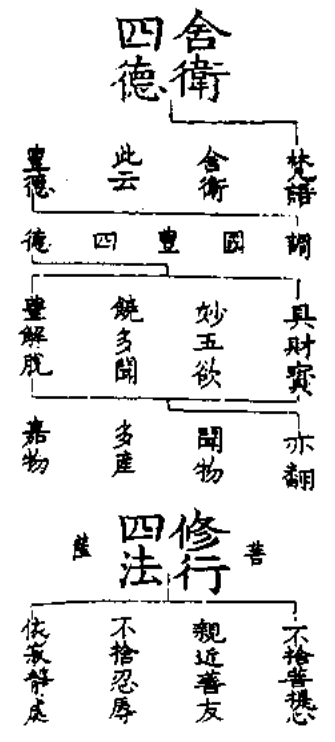 舍衛
四德
梵語
舍衛
此云
豐德
調國豐四德
具財寳
妙五欲
饒多聞
豐解脫
亦翻
聞物
多產
嘉物
菩
修行
四法
薩
不捨菩提心
親近善友
不捨忍辱
依寂靜處